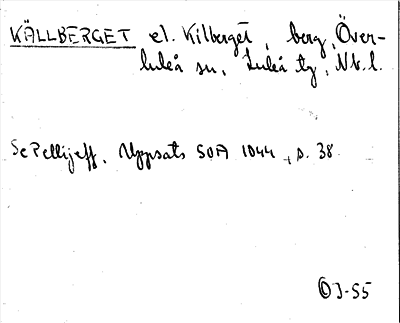 KÄLLBERGET el. Kilberget, berg, Över-
luleå sn, Luleå tg, Nb. l.
Se Pellijeff, Uppsats SOFI 1044, s. 38
OJ-55